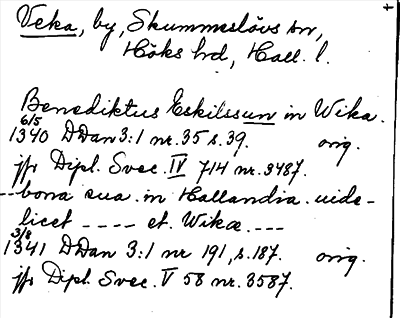 Veka, by, Skummeslövs sn,
Höks hd, Hall. l.
Benediktus Eskilssun in Wika.
6/5
1340 DDan 3:1 nr. 35 s. 39. orig.
jfr Dipl. Svec. IV 714 nr. 3487.
--bona sua in Hallandia uide-
licet ---- et Wikæ ---
3/8
1341 DDan 3:1 nr 191, s. 187. orig.
jfr Dipl. Svec. V 58 nr. 3587.